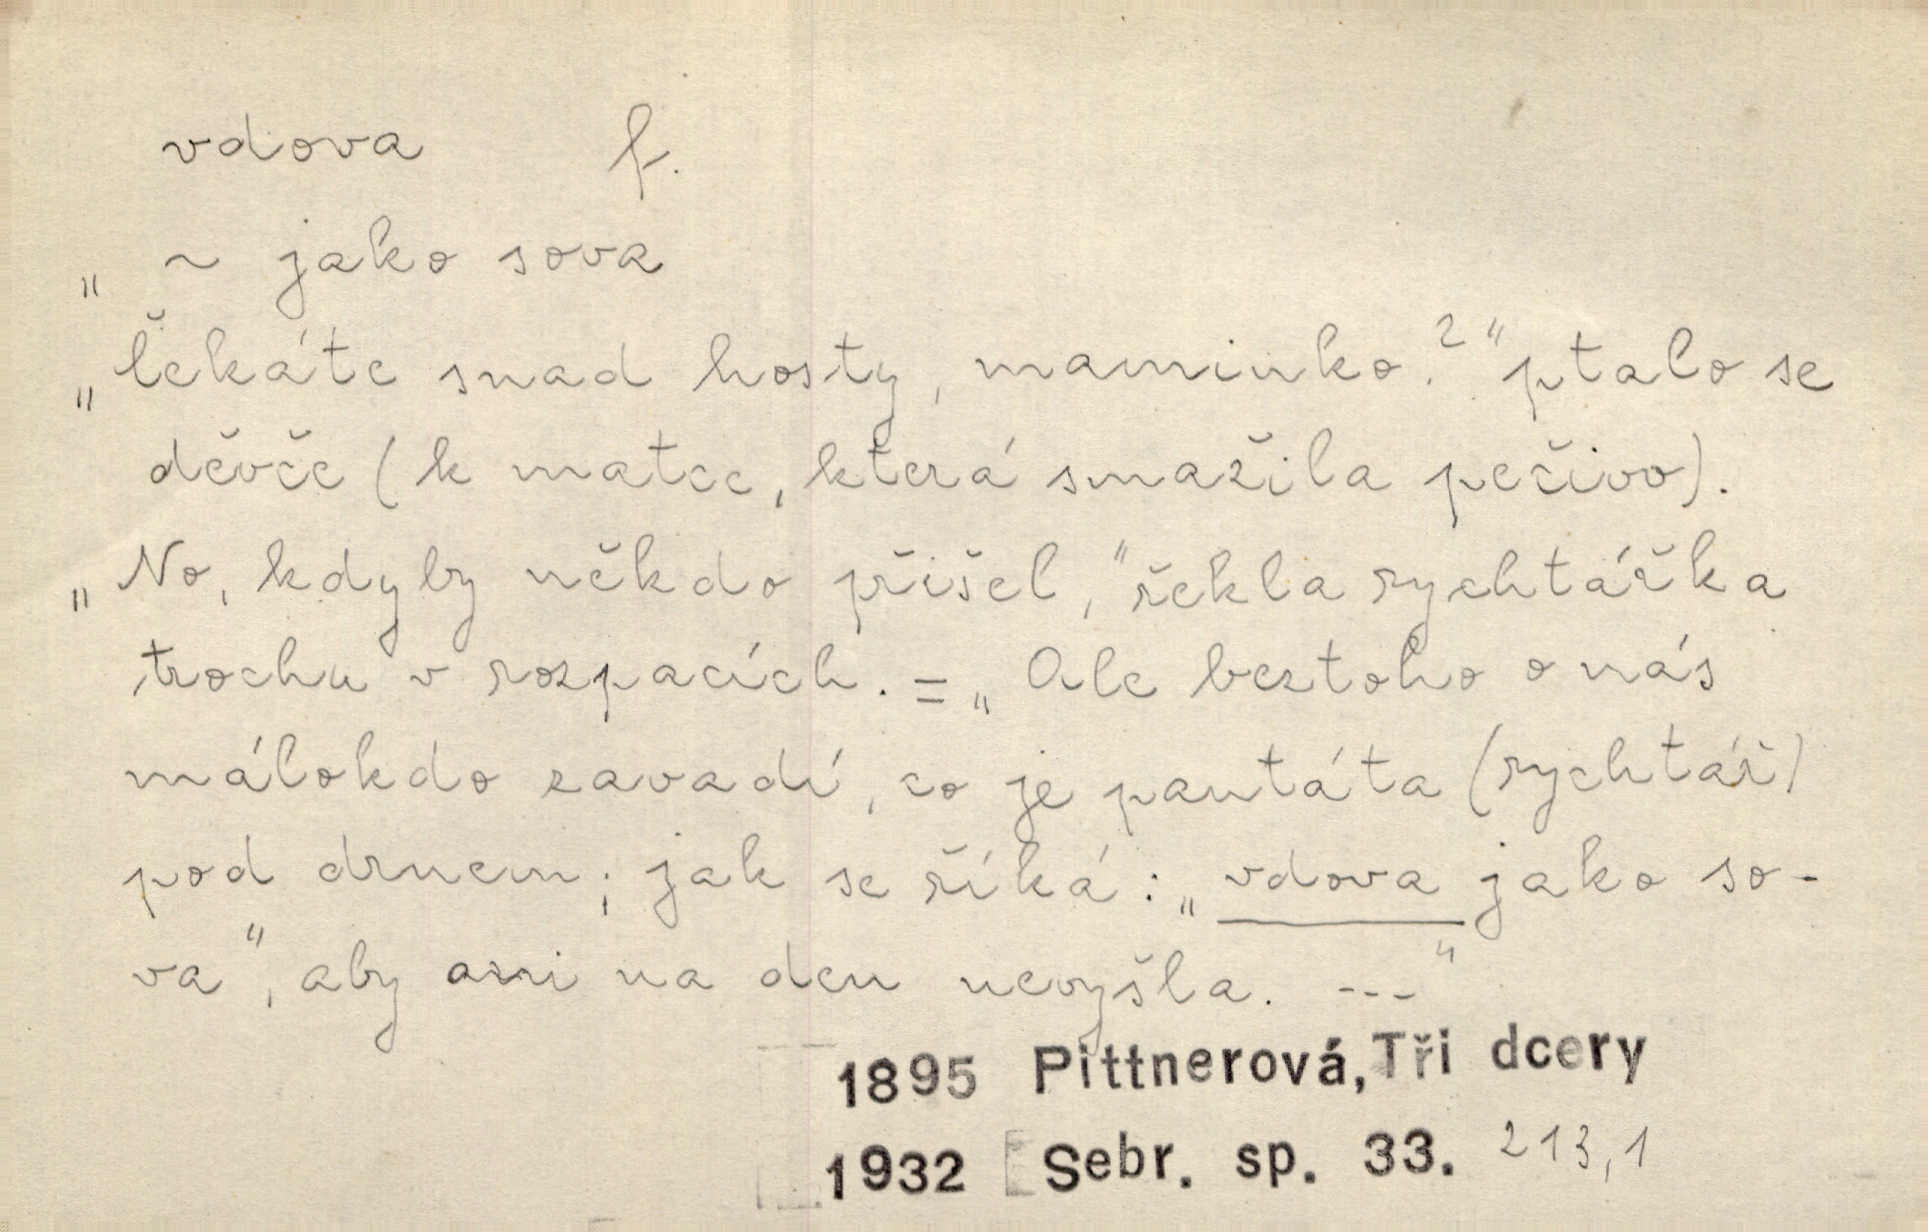 vdova f.
„ ~ jako sova
„Čekáte snad hosty, maminko?“ ptalo se
děvče (k matce, která smažila pečivo).
„No, kdyby někdo přišel,“ řekla rychtářka
trochu v rozpacích. = „Ale beztoho o nás
málokdo zavadí, co je pantáta (rychtář)
pod drnem; jak se říká: „vdova jako so-
va“, aby ani na den nevyšla. ---“
1895 Pittnerová, Tři dcery
1932 [Sebr. sp. 33. 213,1